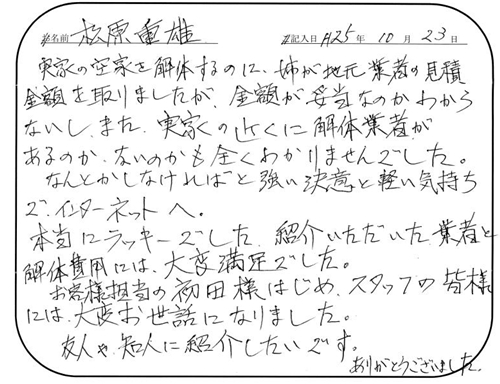 お名前 松原重雄 ご記入日 H25年10月23日
実家の空家を解体するのに、姉が地元業者の見積
金額を取りましたが、金額が妥当なのかわから
ないし、また、実家の近くに解体業者が
あるのか、ないのかも全くわかりませんでした。
なんとかしなければと強い決意と軽い気持ち
で、インターネットへ。
本当にラッキーでした、紹介いただいた業者と
解体費用には、大変満足でした。
お客様担当の初田様はじめ、スタッフの皆様
には、大変お世話になりました。
友人や知人に紹介したいです。
ありがとうございました。